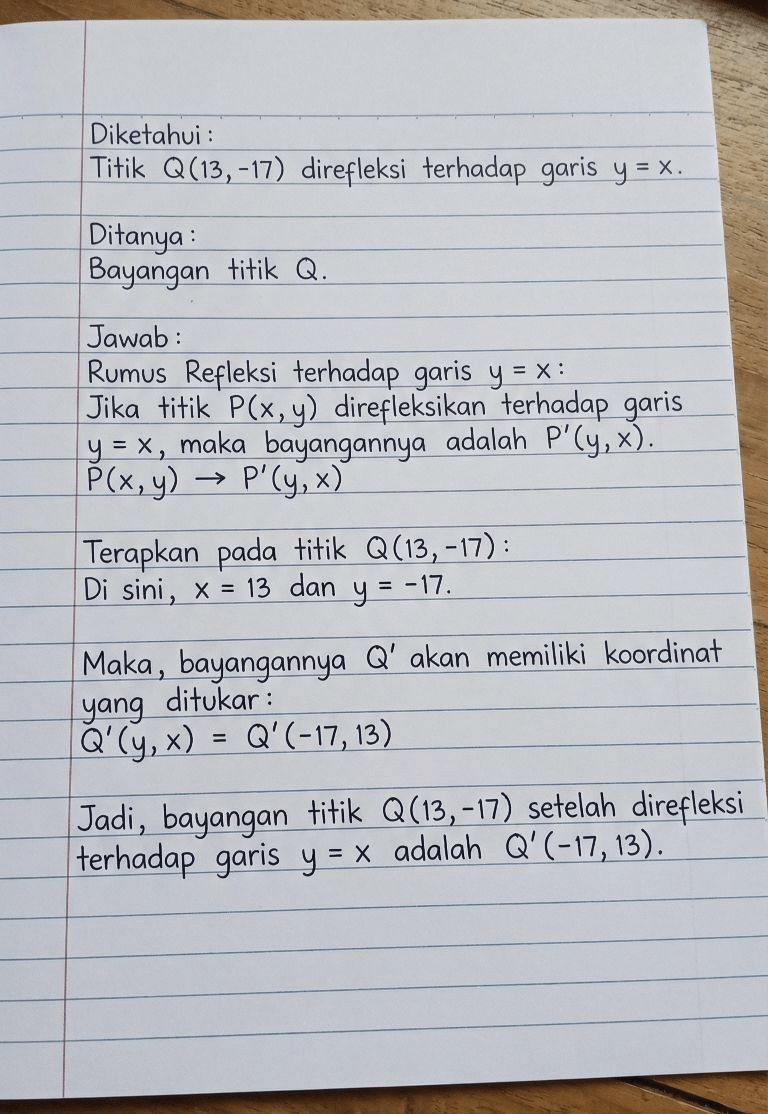 Diketahui :
Titik Q(13, -17) direfleksi terhadap garis y = x.
Ditanya :
Bayangan titik Q.
Jawab :
Rumus Refleksi terhadap garis y = x :
Jika titik P(x, y) direfleksikan terhadap garis
y = x, maka bayangannya adalah P'(y, x).
P(x, y) → P'(y, x)
Terapkan pada titik Q(13, -17) :
Di sini, x = 13 dan y = -17.
Maka, bayangannya Q' akan memiliki koordinat
yang ditukar :
Q'(y, x) = Q'(-17, 13)
Jadi, bayangan titik Q(13, -17) setelah direfleksi
terhadap garis y = x adalah Q'(-17, 13).